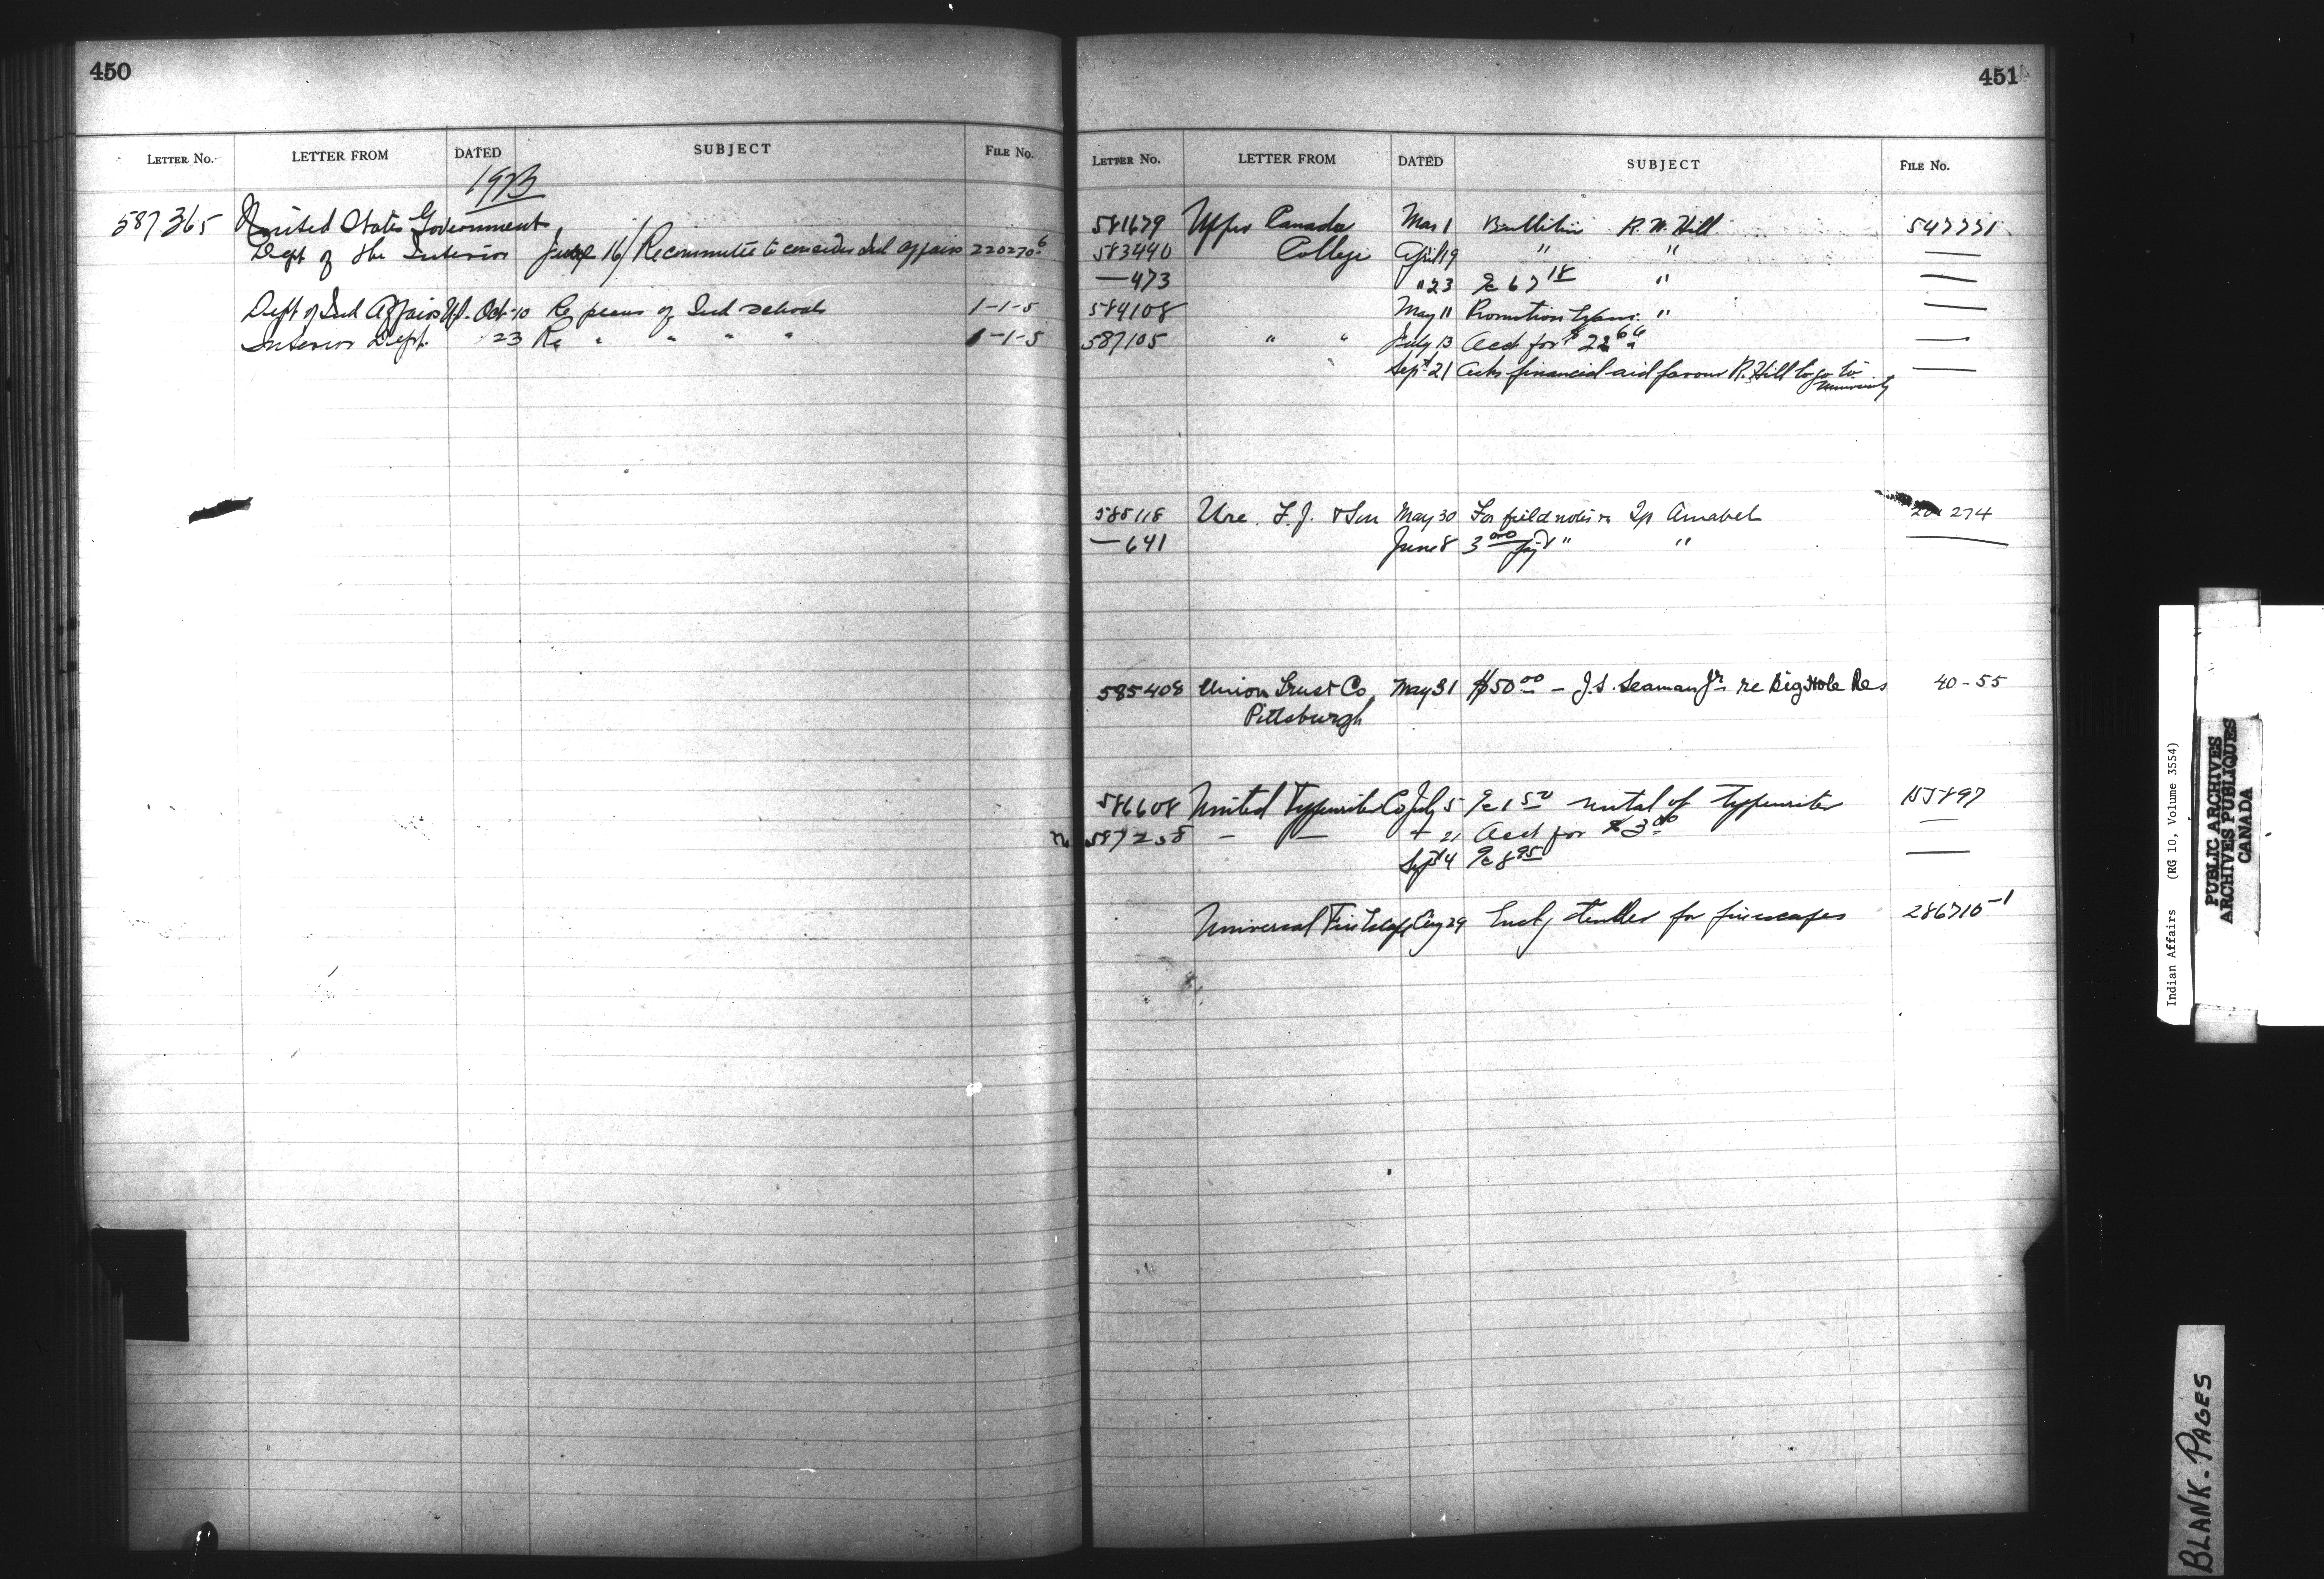 450
LETTER No. LETTER FROM DATED SUBJECT FILE No.
1923
587365 United States Government
Dept of the Interior July 16/ Re committee to consider Ind affairs 220270-6
Dept of Ind Affairs Oct-10 Re plans of Ind schools 1-1-5
Interior Dept. 23 Re " " " " 1-1-5
451
LETTER No. LETTER FROM DATED SUBJECT FILE No.
581679 Upper Canada Mar 1 Bulletin R.W. Hill 547771
583440 College April 19 " " —
—473 " 23 67 18 " —
584108 May 11 Promotion "  —
587105 " " July 13 Acct for $22 66 —
Sept 21 Asks financial aid favour R. Hill to go to —
University
585118 Ure F.J. & Son May 30 For field notes re Tp Amabel 274
—641 June 8 3 00 for " " —
585408 Union Trust Co. May 31 $50 00 – J.S. Seaman Jr re Big Hole Res 40-55
Pittsburgh
586608 United Typewriter Co July 5 1 50 rental of typewriter 897
587258 – — " 21 Acct for $3 00 —
Sept 4 8 95 —
Universal Fire Escape Aug 29 Encl tender for fire escapes 286710-1
Indian Affairs (RG 10, Volume 3554)
PUBLIC ARCHIVES
ARCHIVES PUBLIQUES
CANADA
BLANK-PAGES